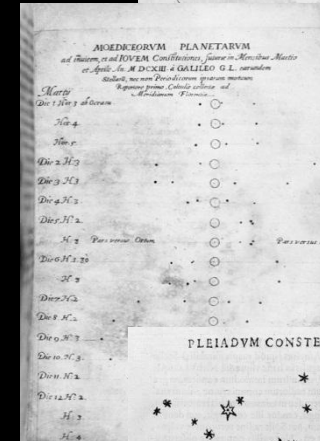 MOEDICEORVM PLANETARVM
ad invicem, et ad IOVEM Constitutiones, futuræ in Mensibus Martio
et Aprile An. M DCXIII. à GALILEO G. L. earundem
Stellarū, nec non Periodicorum ipsarum motuum
Repertore primo, Calculis collectæ ad
Meridianum Florentiæ
Martii
Die 1 Hor. 3 ab Occasu
Hor. 4.
Hor. 5.
Die 2 H. 3
Die 3 H. 3
Die 4 H. 2
Die 5 H. 2.
H. 3 Pars versus Ortum Pars versus
Die 6 H. 1. 30
H. 3
Die 7 H. 2
Die 8 H. 2
Die 9 H. 3
Die 10. H. 3.
Die 11. H. 2.
Die 12 H. 2.
H. 3
H. 4
PLEIADVM CONSTE